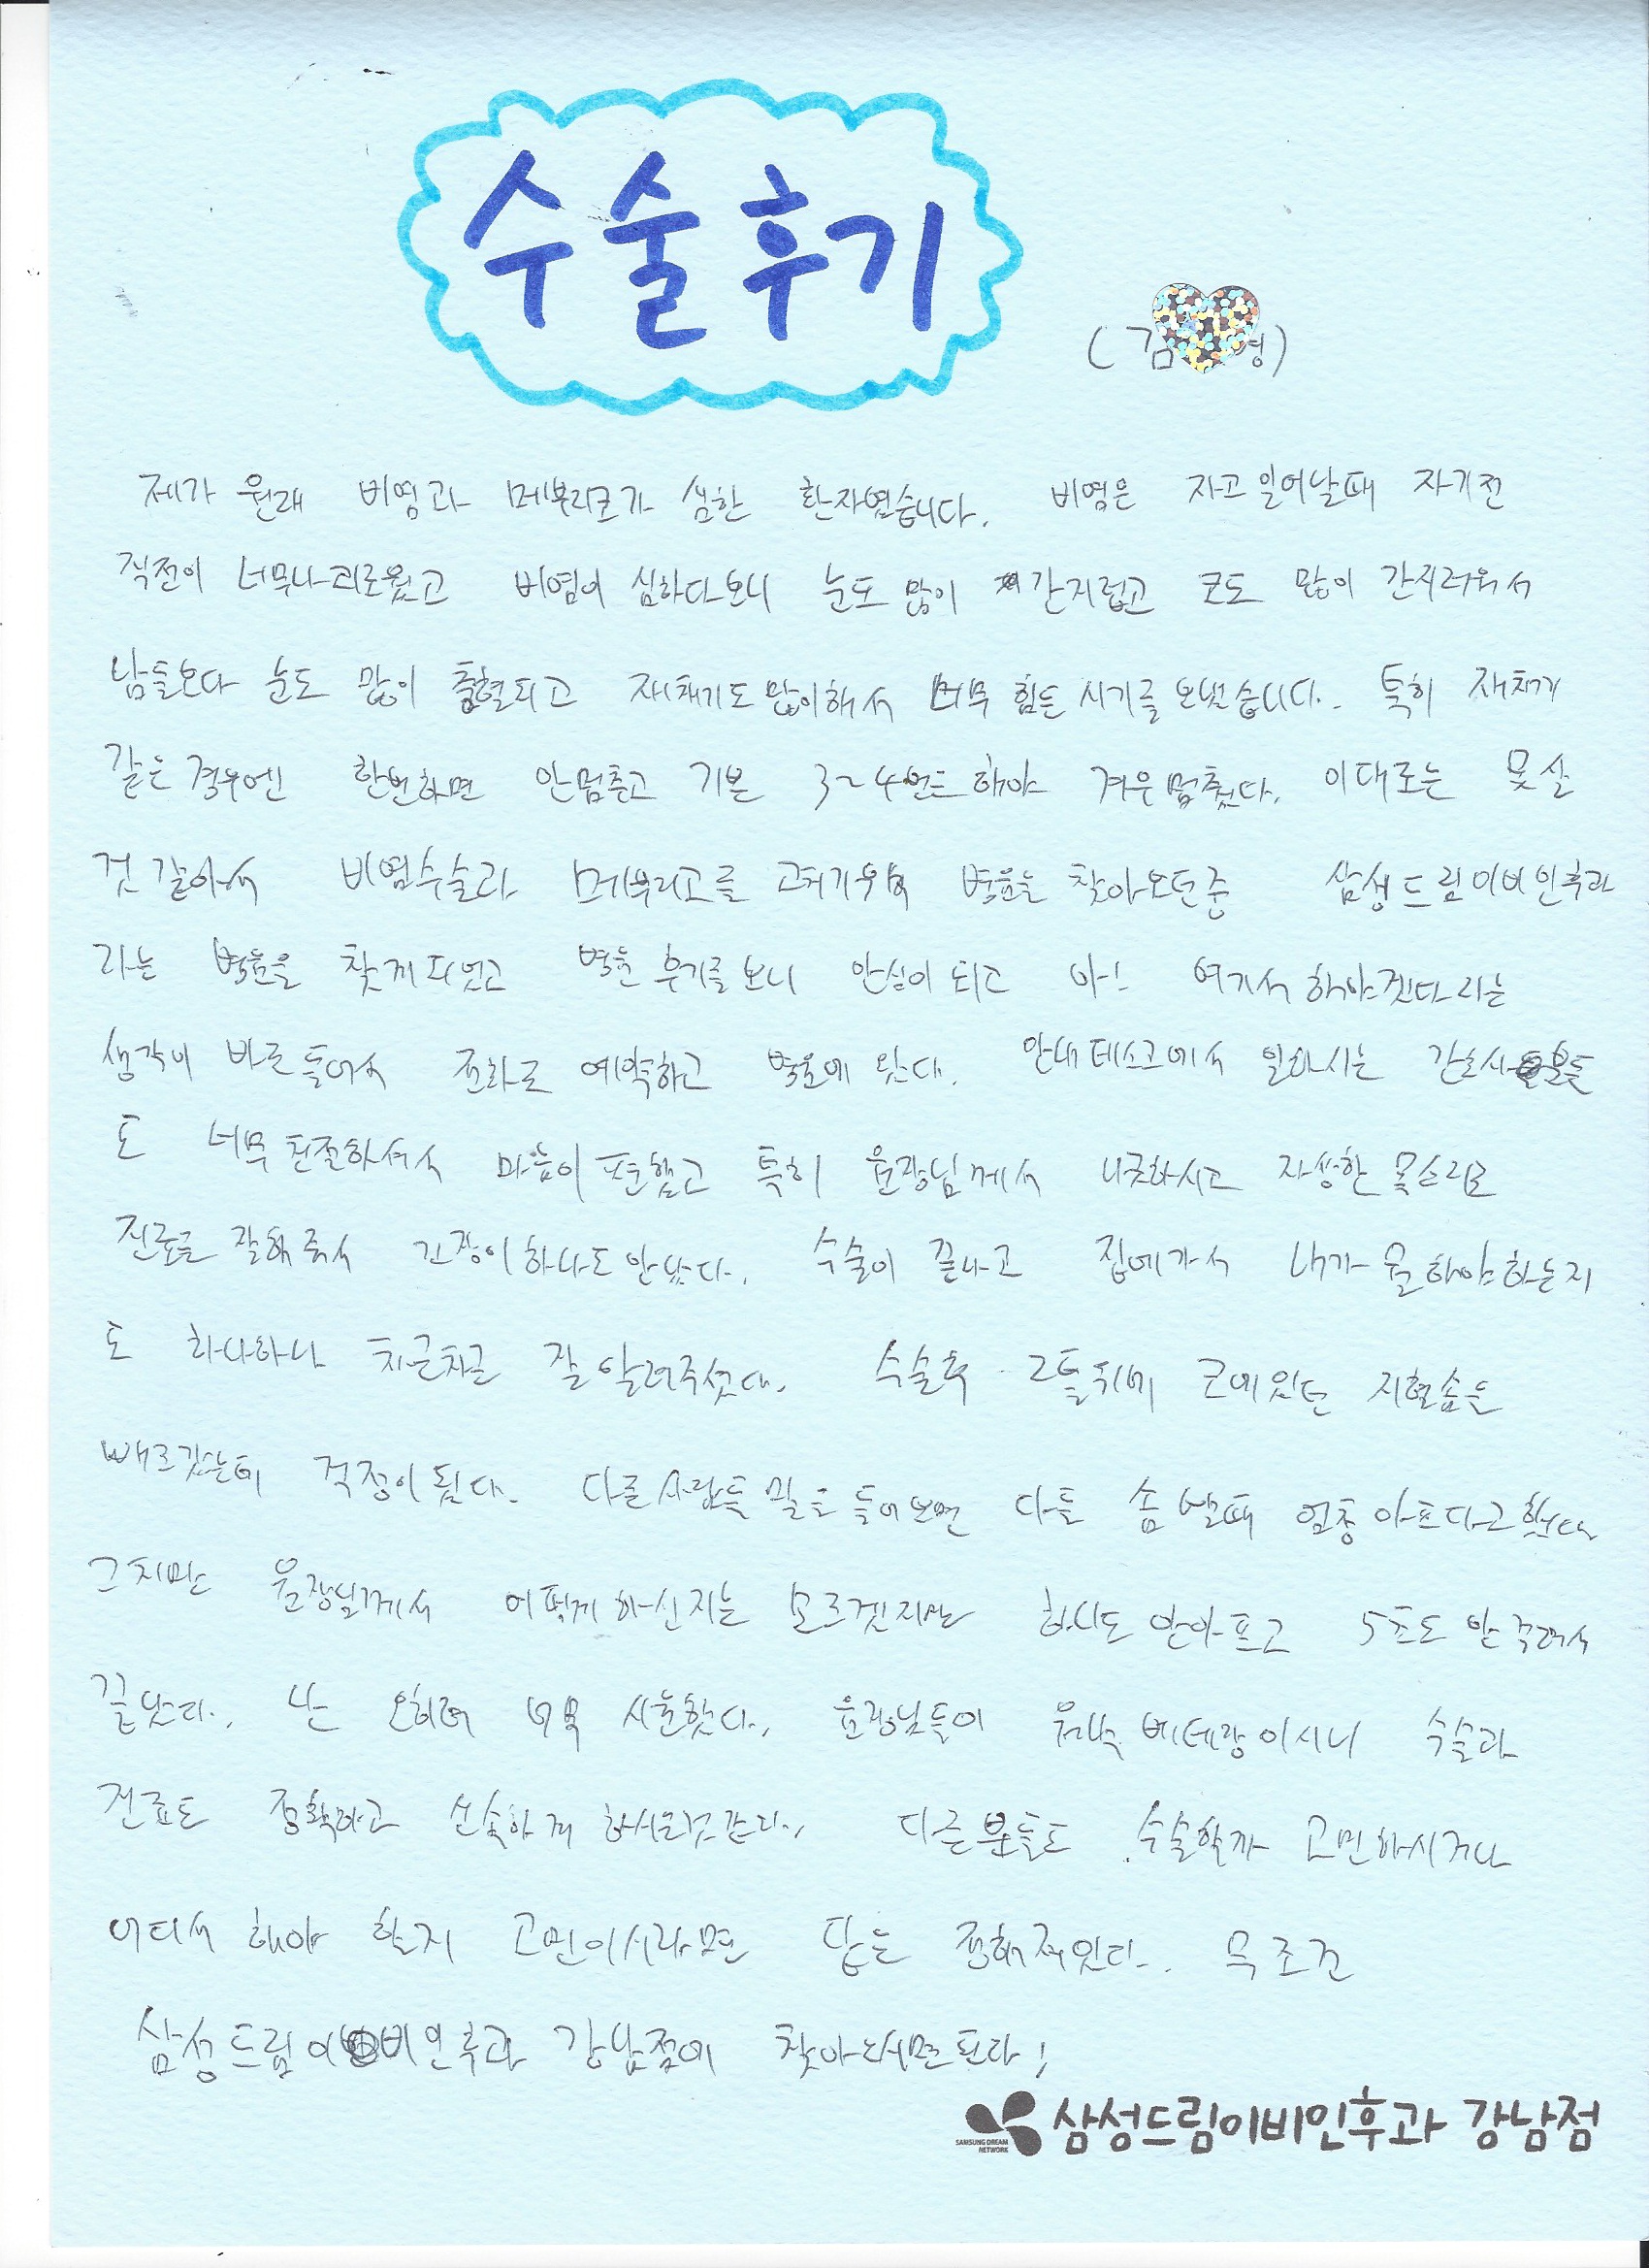 수술후기
(김 영)
제가 원래 비염과 메부리코가 심한 환자였습니다. 비염은 자고 일어날때 자기전
직전이 너무나 괴로웠고 비염이 심하다보니 눈도 많이 간지럽고 코도 많이 간지러워서
남들보다 눈도 많이 충혈되고 재채기도 많이해서 너무 힘든 시기를 보냈습니다. 특히 재채기
같은 경우엔 한번하면 안멈추고 기본 3~4번은 해야 겨우 멈췄다. 이대로는 못살
것 같아서 비염수술과 메부리코를 고치기위해 병원을 찾아오던중 삼성드림이비인후과
라는 병원을 찾게 되었고 병원 후기를 보니 안심이 되고 아! 여기서 해야겠다 라는
생각이 바로 들어서 전화로 예약하고 병원에 왔다. 안내데스크에서 일하시는 간호사분들
도 너무 친절하셔서 마음이 편했고 특히 원장님께서 나긋하시고 자상한 목소리로
진료를 잘해줘서 긴장이 하나도 안났다. 수술이 끝나고 집에가서 내가 뭘 해야하는지
도 하나하나 차근차근 잘 알려주셨다. 수술후 2틀뒤에 코에있던 지혈솜을
빼르갔는데 걱정이 됬다. 다른사람들 말을 들어보면 다들 솜 뺄때 엄청 아프다고 했다
그치만 원장님께서 어떻게 하신지는 모르겠지만 하나도 안아프고 5초도 안 걸려서
끝났다. 난 오히려 너무 시원했다. 원장님들이 워낙 베테랑이시니 수술과
진료도 정확하고 신속하게 하시는것 같다. 다른분들도 수술할까 고민하시거나
어디서 해야 할지 고민이시라면 답은 정해져있다. 무조건
삼성드림이비인후과 강남점에 찾아오시면된다!
SAMSUNG DREAM NETWORK
삼성드림이비인후과 강남점